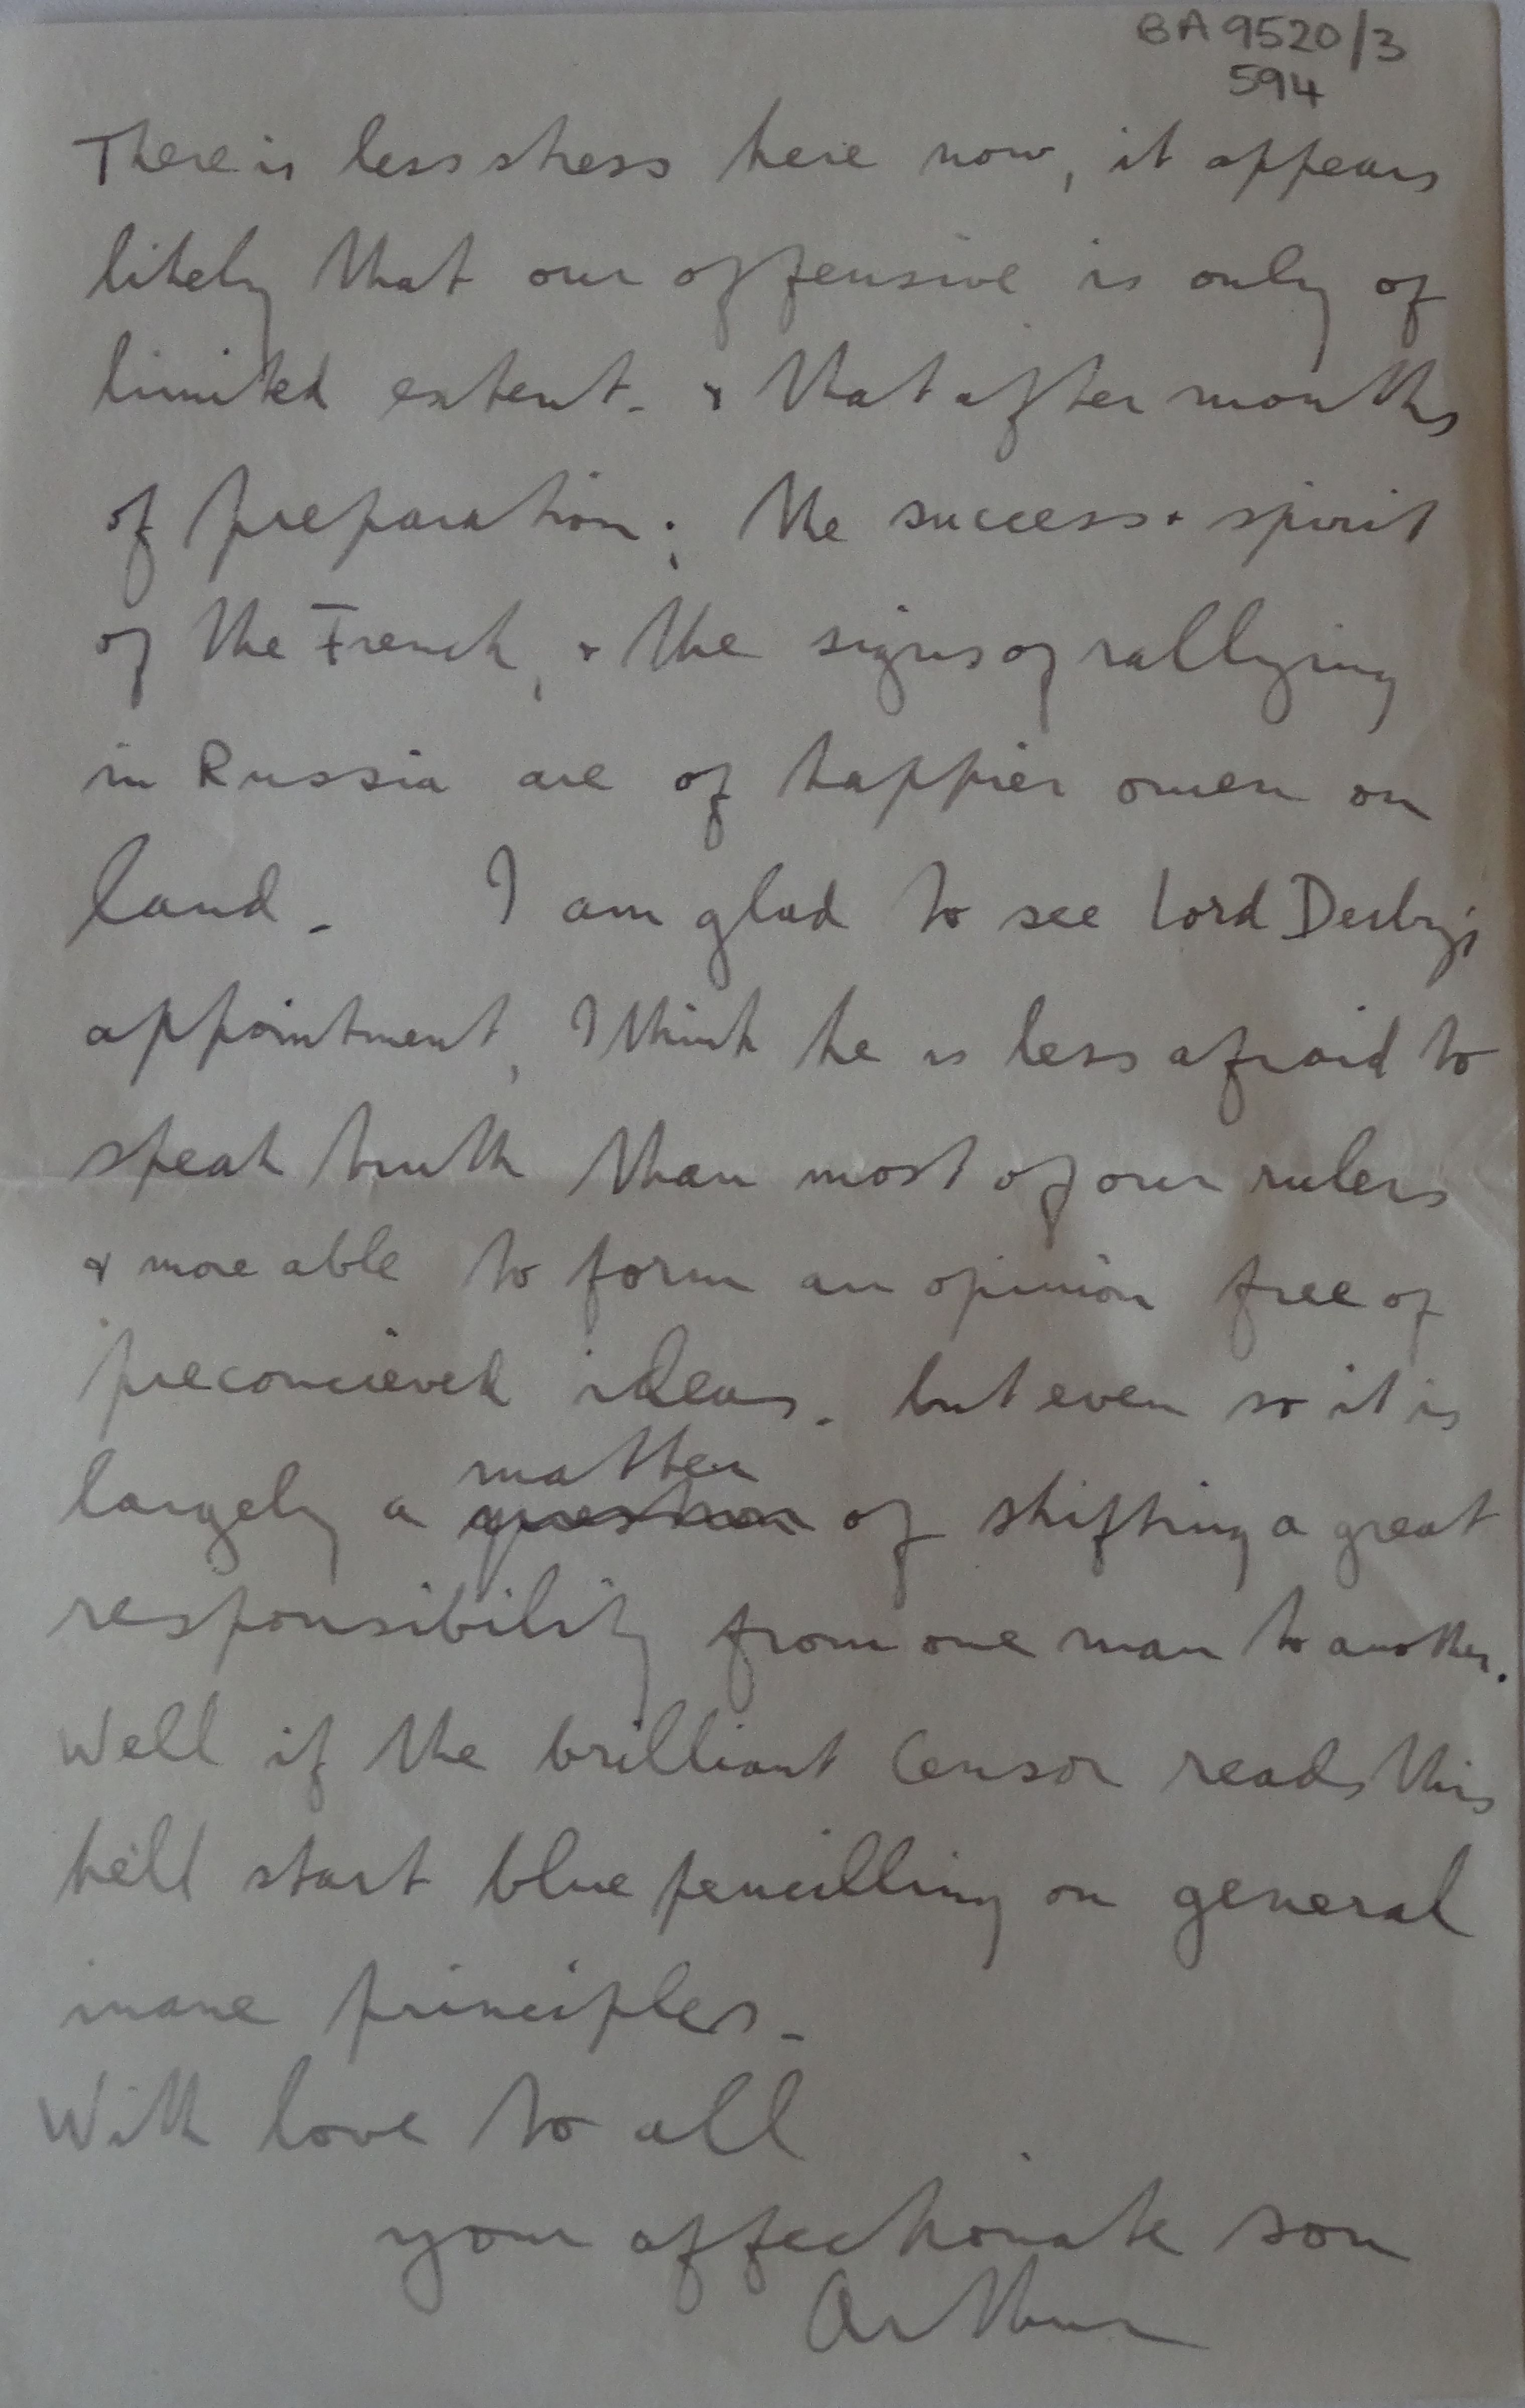 BA 9520/3
594
There is less stress here now, it appears
likely that our offensive is only of
limited extent. & that after months
of preparation; the success & spirit
of the French, & the signs of rallying
in Russia are of happier omen on
land. I am glad to see Lord Derby's
appointment, I think he is less afraid to
speak truth than most of our rulers
& more able to form an opinion free of
preconcieved ideas. but even so it is
matter
largely a question of shifting a great
responsibility from one man to another.
Well if the brilliant Censor reads this
he'll start blue pencilling on general
inane principles.
With love to all
your affectionate son
Arthur